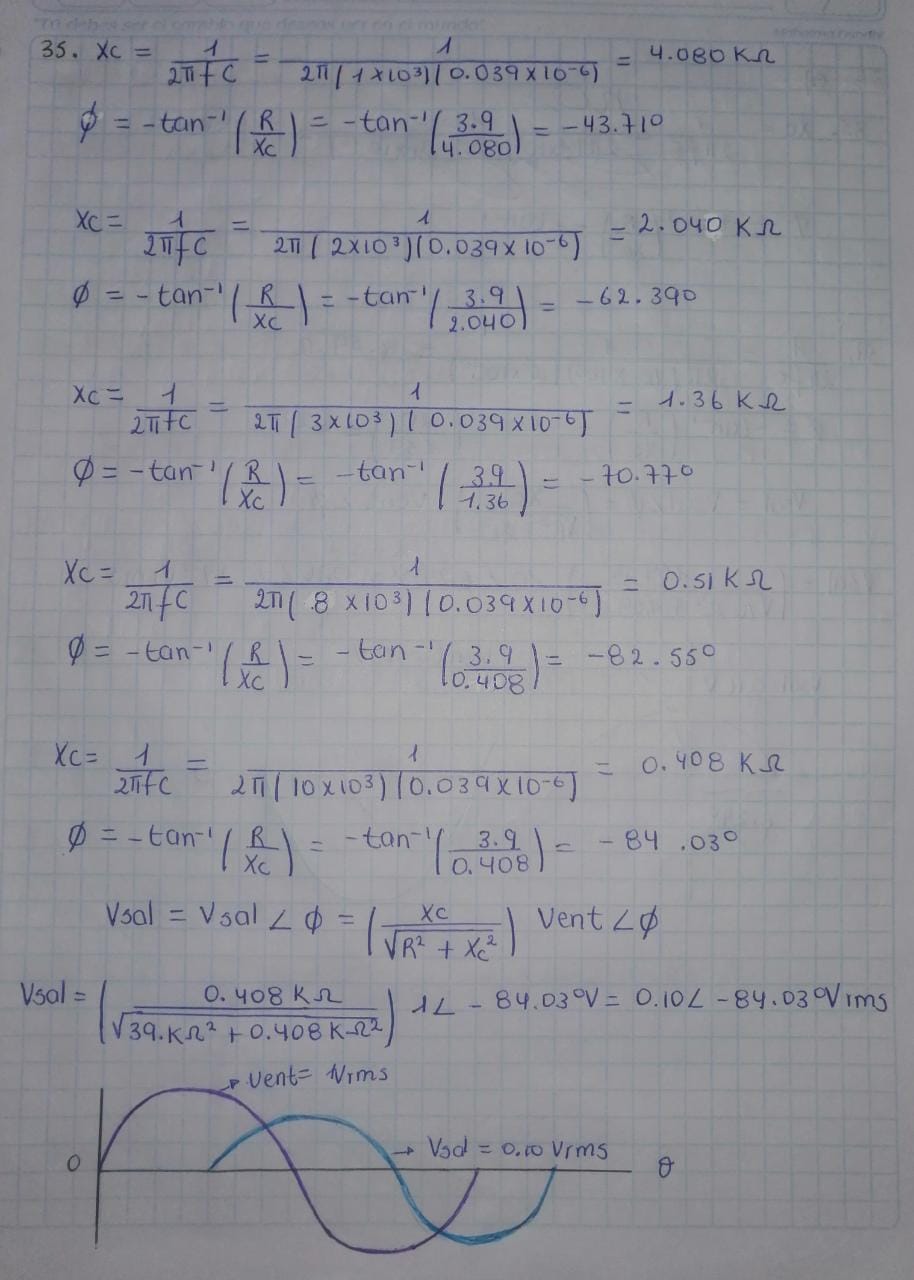 "Tú debes ser el cambio que deseas ver en el mundo"
35. Xc = 1/2πfC = 1/2π(1x10³)(0.039x10⁻⁶) = 4.080 KΩ
ϕ = -tan⁻¹(R/Xc) = -tan⁻¹(3.9/4.080) = -43.71°
Xc = 1/2πfC = 1/2π(2x10³)(0.039x10⁻⁶) = 2.040 KΩ
ϕ = -tan⁻¹(R/Xc) = -tan⁻¹(3.9/2.040) = -62.39°
Xc = 1/2πfC = 1/2π(3x10³)(0.039x10⁻⁶) = 1.36 KΩ
ϕ = -tan⁻¹(R/Xc) = -tan⁻¹(3.9/1.36) = -70.77°
Xc = 1/2πfC = 1/2π(8x10³)(0.039x10⁻⁶) = 0.51 KΩ
ϕ = -tan⁻¹(R/Xc) = -tan⁻¹(3.9/0.408) = -82.55°
Xc = 1/2πfC = 1/2π(10x10³)(0.039x10⁻⁶) = 0.408 KΩ
ϕ = -tan⁻¹(R/Xc) = -tan⁻¹(3.9/0.408) = -84.03°
Vsal = Vsal ∠ ϕ = (Xc/√R² + Xc²) Vent ∠ϕ
Vsal = (0.408 KΩ/√39.KΩ² + 0.408 KΩ²) 1∠ -84.03°V = 0.10∠ -84.03°Vrms
Vent = 1Vrms
0
Vsal = 0.10 Vrms
θ